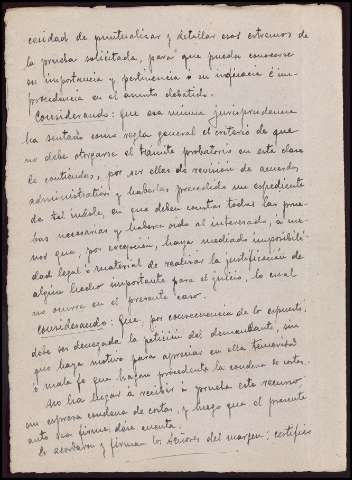 cesidad de puntualizar y detallar esos extremos de
la prueba solicitada, para que pueda conocerse
su importancia y pertinencia o su ineficacia e im-
procedencia en el asunto debatido.
Considerando: Que esa misma jurisprudencia
ha sentado como regla general el criterio de que
no debe otorgarse el trámite probatorio en esta clase
de contiendas, por ser ellas de revisión de acuerdos
administrativos y haberlas precedido un expediente
de tal índole, en que deben constar todas las prue-
bas necesarias y haberse oido al interesado, a me-
nos que, por excepción, haya mediado imposibili-
dad legal o material de realizar la justificación de
algún hecho importante para el juicio, lo cual
no ocurre en el presente caso.
Considerando: Que, por consecuencia de lo expuesto,
debe ser denegada la petición del demandante, sin
que haya motivo para apreciar en ella temeridad
o mala fe que hagan procedente la condena de costas.
No ha lugar a recibir a prueba este recurso,
sin expresa condena de costas, y luego que el presente
auto sea firme, dése cuenta.
Lo acordaron y firman los Señores del margen; certifico